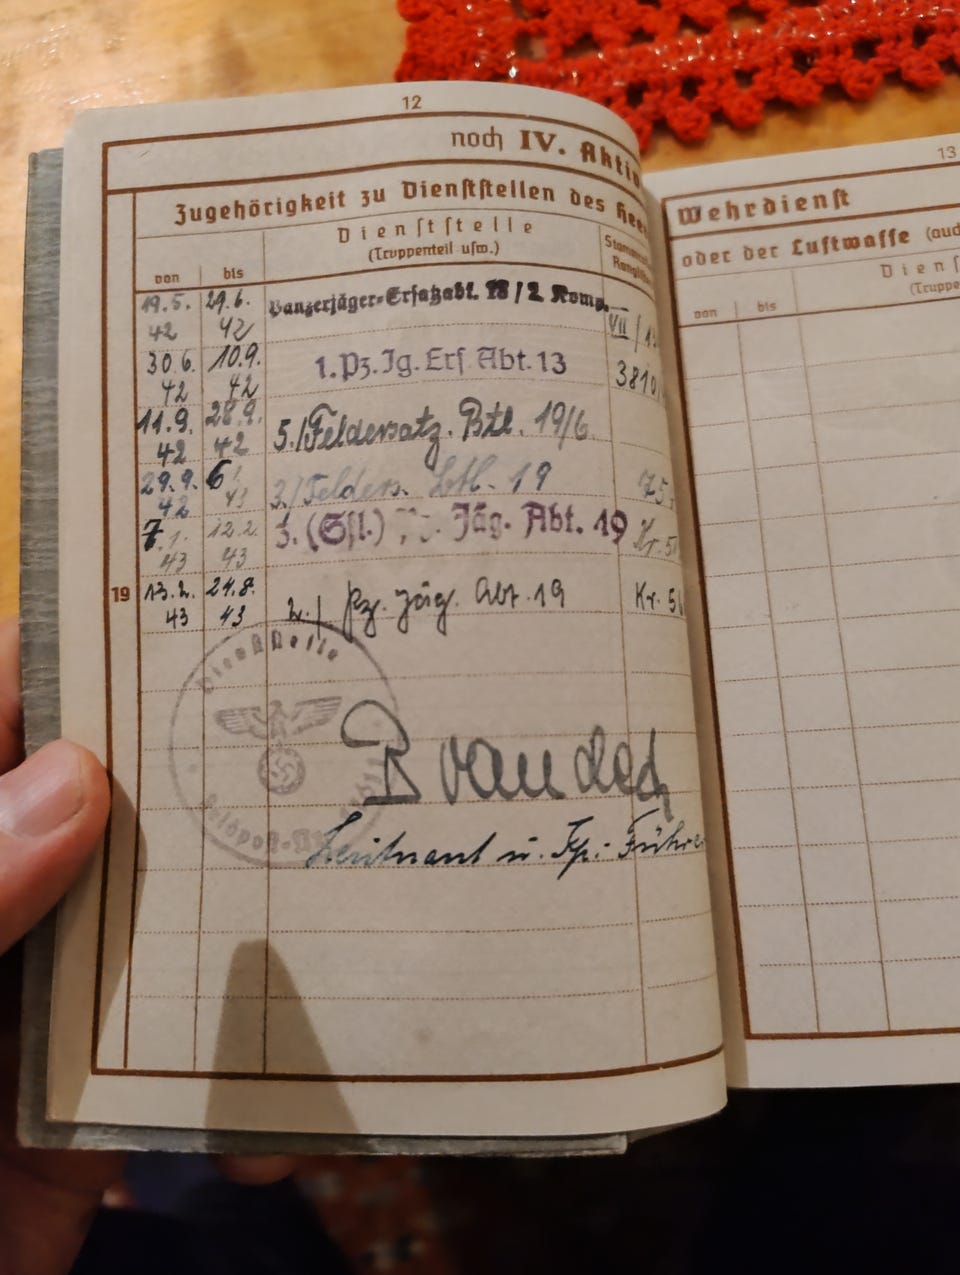 12
noch IV. Aktiv
Zugehörigkeit zu Dienststellen des Heer
Dienststelle
(Truppenteil usw.)
von bis
19.5. 42 29.6. 42 Panzerjäger-Ersatzabt. 18/2. Komp. VII
30.6. 42 10.9. 42 1. Pz. Jg. Ers Abt. 13 3810
11.9. 42 28.9. 42 5./Feldersatz. Btl. 19/6.
29.9. 42 6 43 3./Felders. Btl. 19 75
7.1. 43 12.2. 43 3. (Sfl.) Jäg. Abt. 19 Kr. 5
19
13.2. 43 24.8. 43 2./ Pz. Jäg. Abt. 19 Kr. 5
Dienststelle
Leutnant u. Kp.-Führe
13
Wehrdienst
oder der Luftwaffe
Diens
(Truppe
von bis